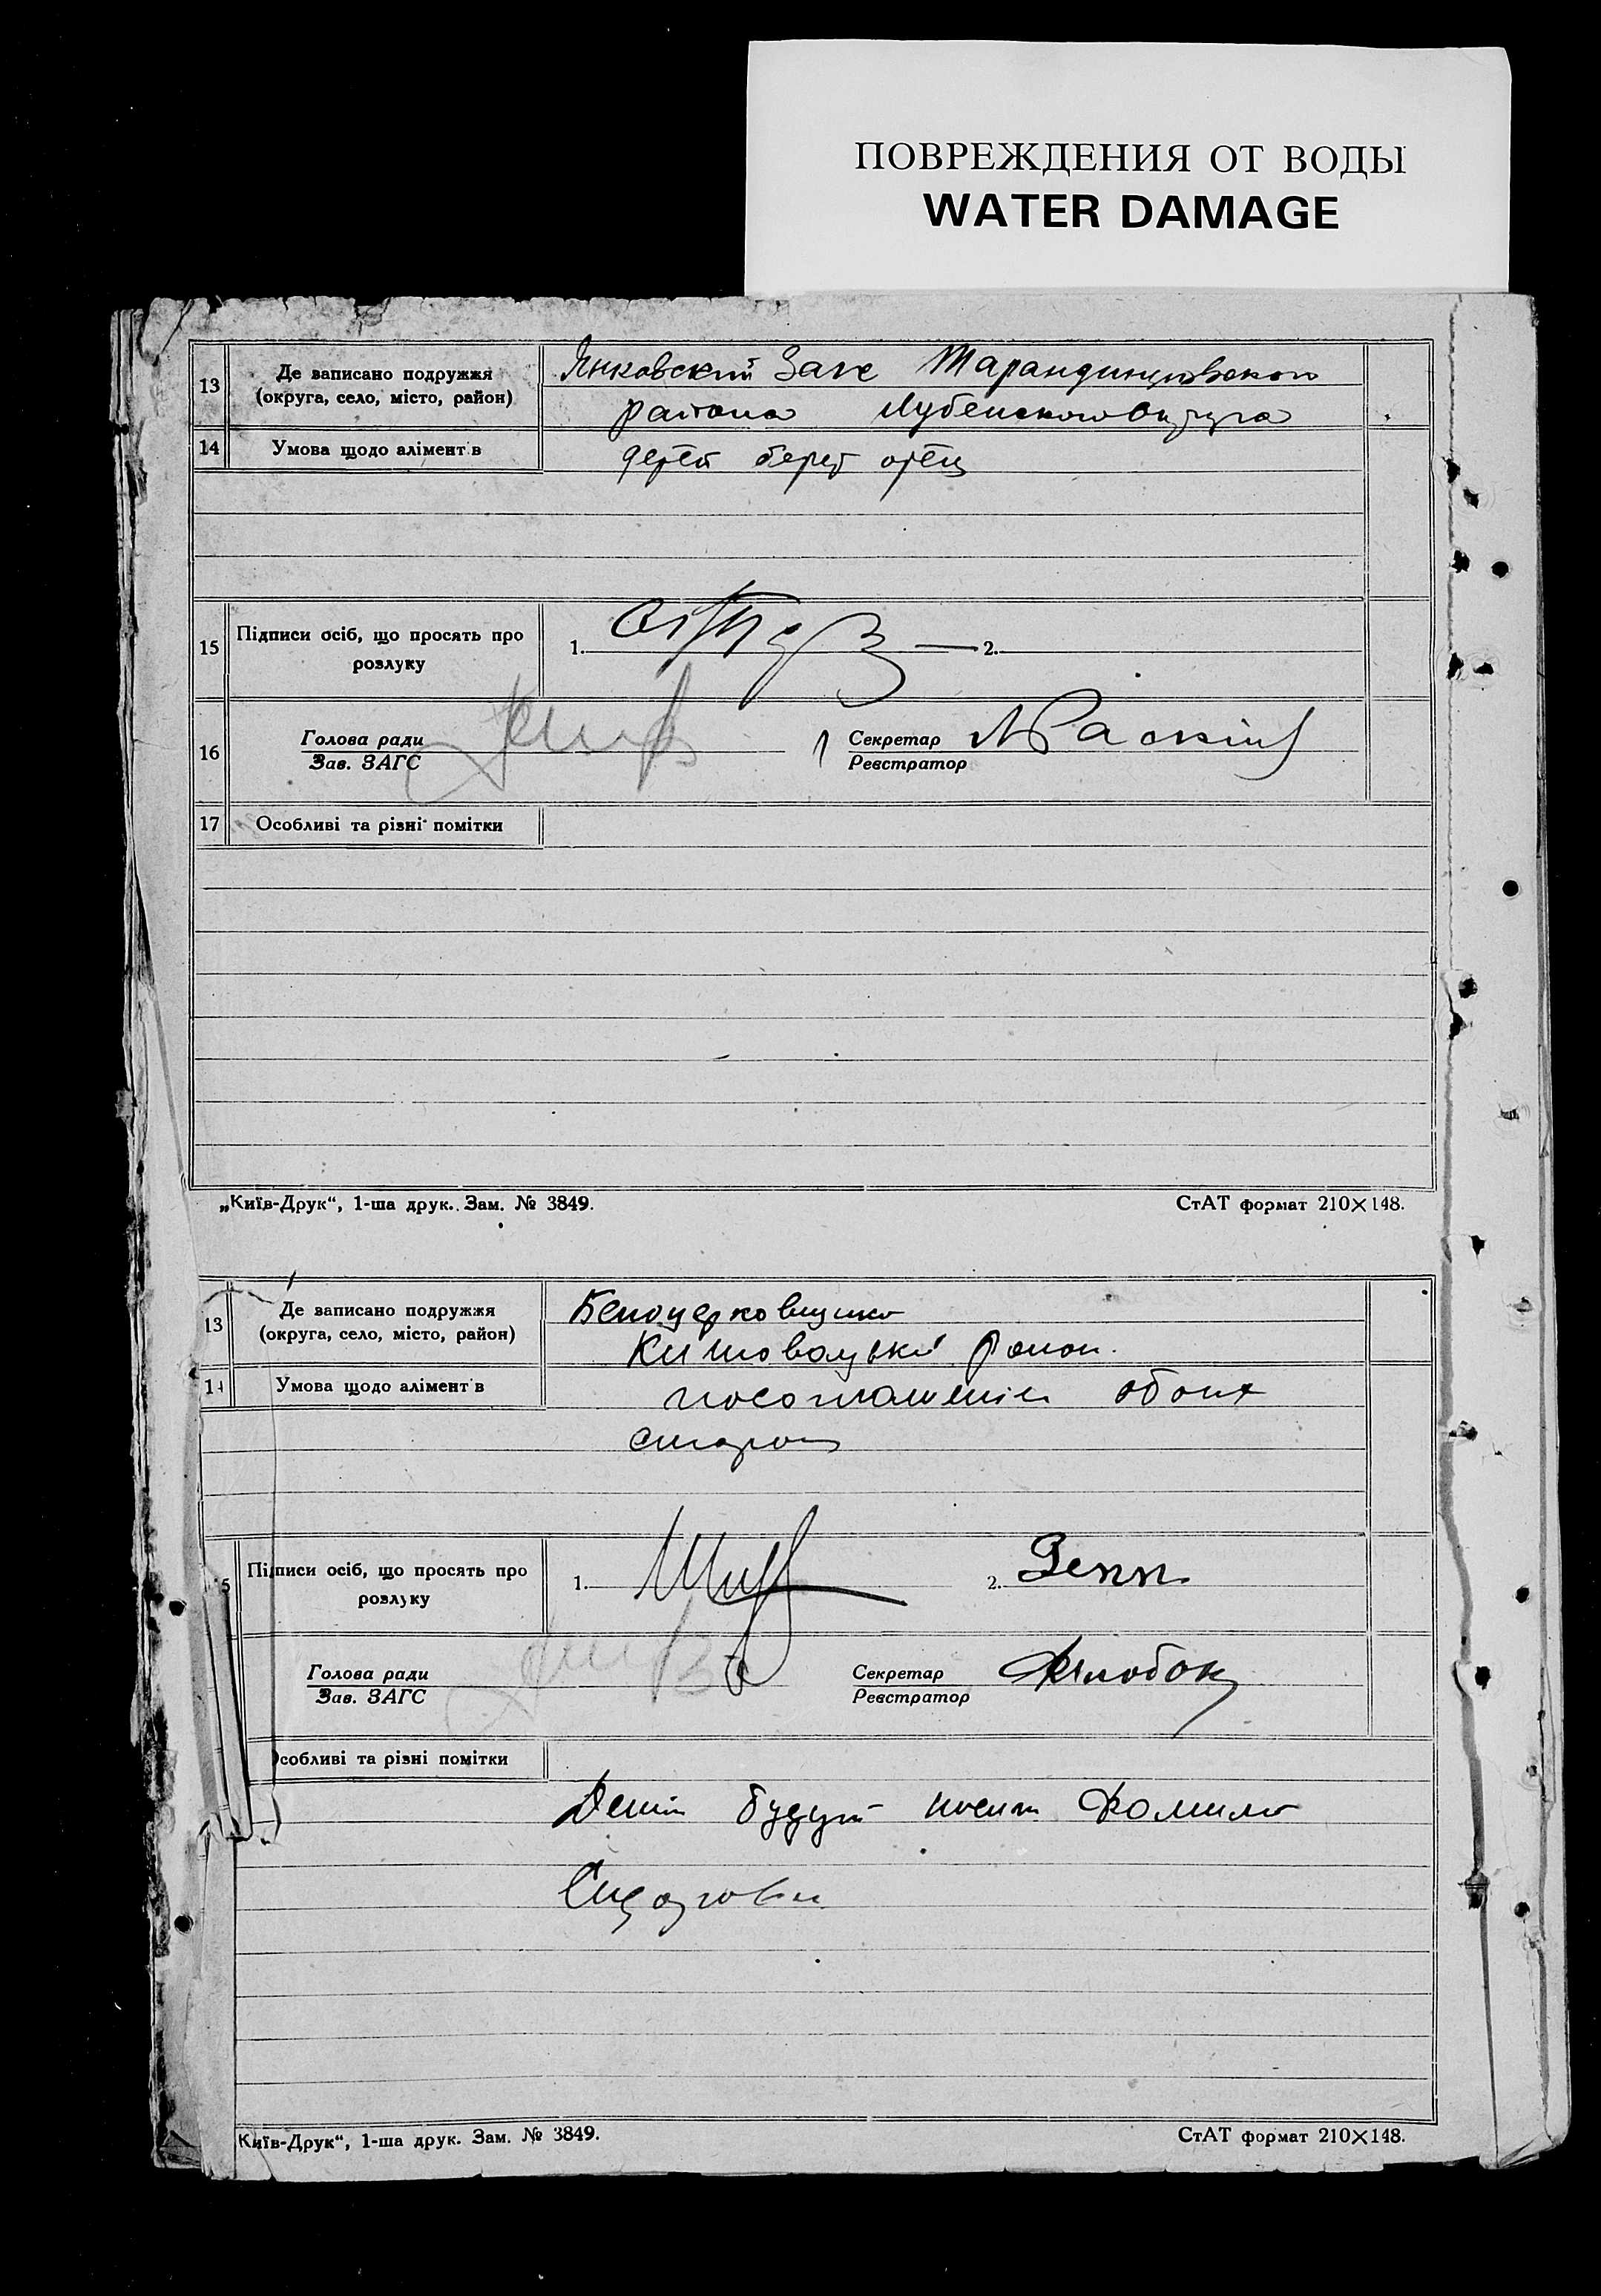 ПОВРЕЖДЕНИЯ ОТ ВОДЫ
WATER DAMAGE
13 Де записано подружжя
(округа, село, місто, район)
Янковский Загс Тарандинцовского
района Лубенского Округа
14 Умова щодо алімент в
детей берет отец
15 Підписи осіб, що просять про
розлуку
1. 2.
16 Голова ради
Зав. ЗАГС
Секретар
Реєстратор
17 Особливі та різні помітки
„Київ-Друк“, 1-ша друк. Зам. № 3849. СтАТ формат 210×148.
13 Де записано подружжя
(округа, село, місто, район)
Белоцерковщина
район.
14 Умова щодо алімент в
посоглашению обоих
сторон
5 Підписи осіб, що просять про
розлуку
1. 2.
Голова ради
Зав. ЗАГС
Секретар
Реєстратор
собливі та різні помітки
Дети будут носит Фамилю
Київ-Друк“, 1-ша друк. Зам. № 3849. СтАТ формат 210×148.